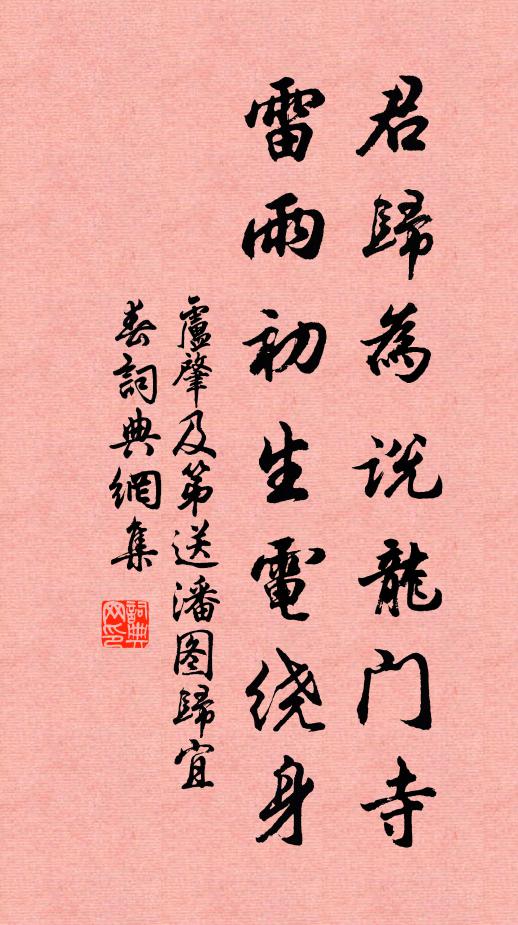 君歸為说龍门寺
雷雨初生電绕身
盧肇及第送潘图歸宜
春詞典網集
詞典网印